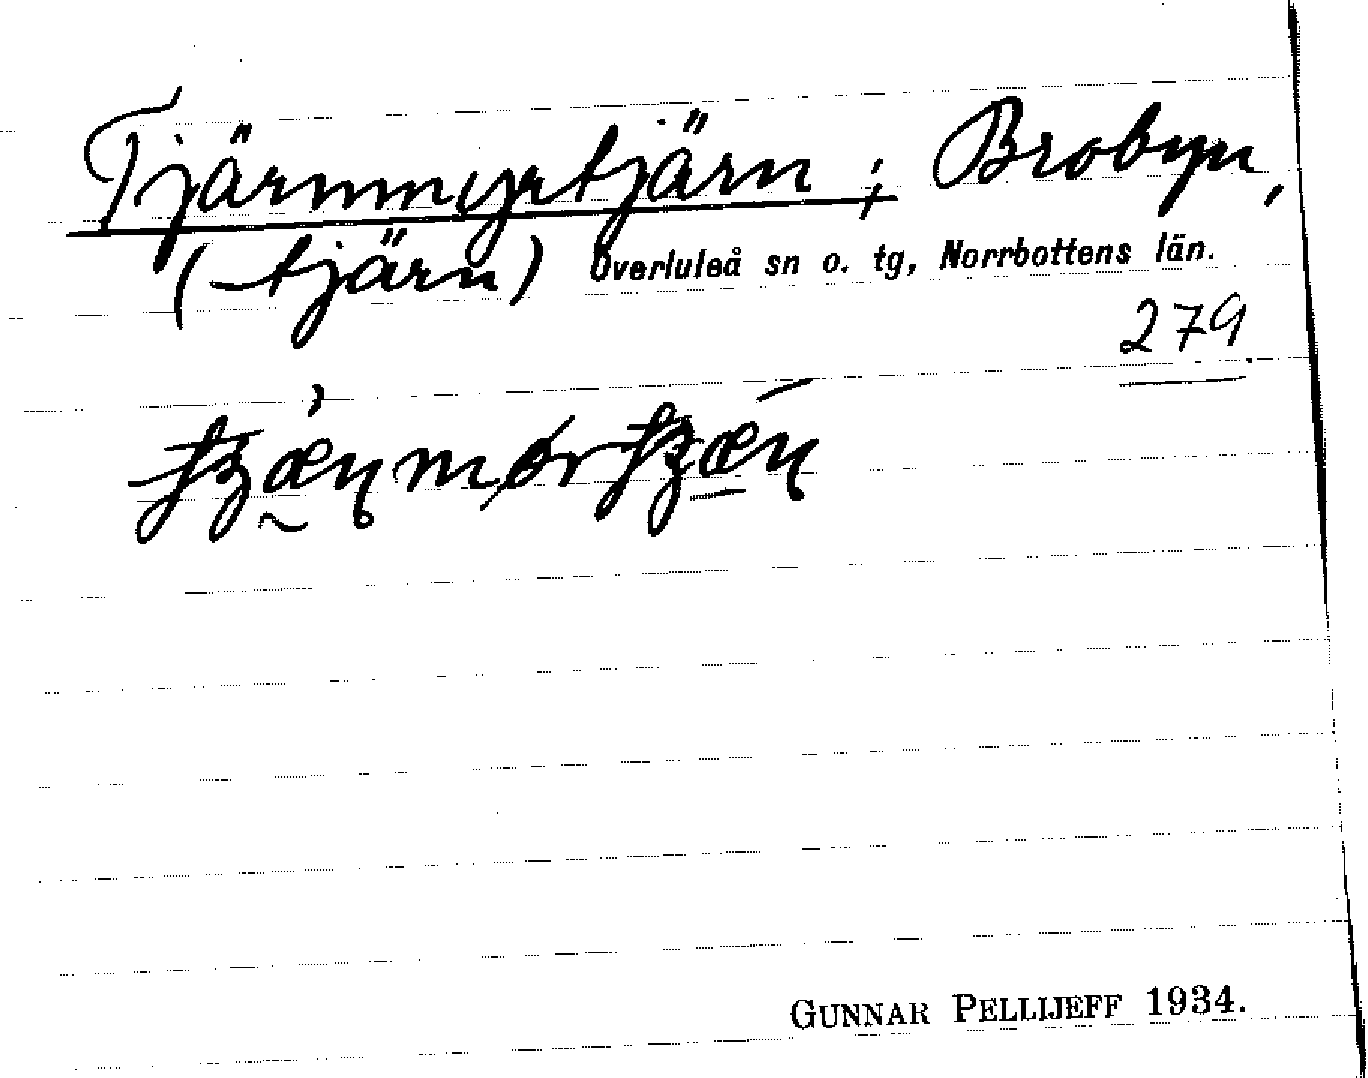 Tjärnmyrtjärn; Brobyn,
(tjärn) Överluleå sn o. tg, Norrbottens län.
279
GUNNAR PELLIJEFF 1934.